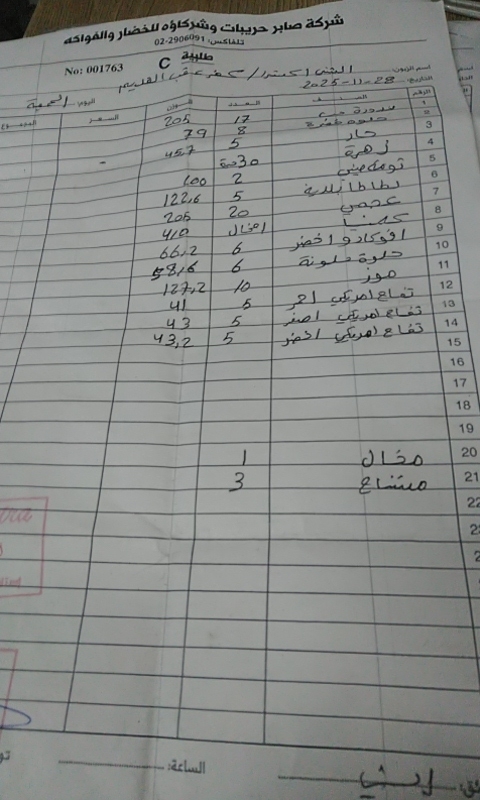 شركة صابر حريبات وشركاؤه للخضار والفواكه
تلفاكس: 02-2906091
طلبية C
No: 001763
اسم الزبون:
التاريخ: 28-11-2025 اليوم: الجمعة
الرقم الصنف العدد الوزن السعر المجموع
1 بندورة 17 205
2 8 79
3 حار 5 45,7
4 زهرة 30
5 2 100
6 بطاطا بلدية 5 122,6
7 عجمي 20 205
8 كلمنتينا 410
9 افوكادو اخضر 6 66,2
10 حلوة ملونة 6 58,6
11 موز 10 127,2
12 تفاح امريكي احمر 5 41
13 تفاح امريكي اصفر 5 43
14 تفاح امريكي اخضر 5 43,2
15
16
17
18
19
20 1
21 3
22
الساعة: